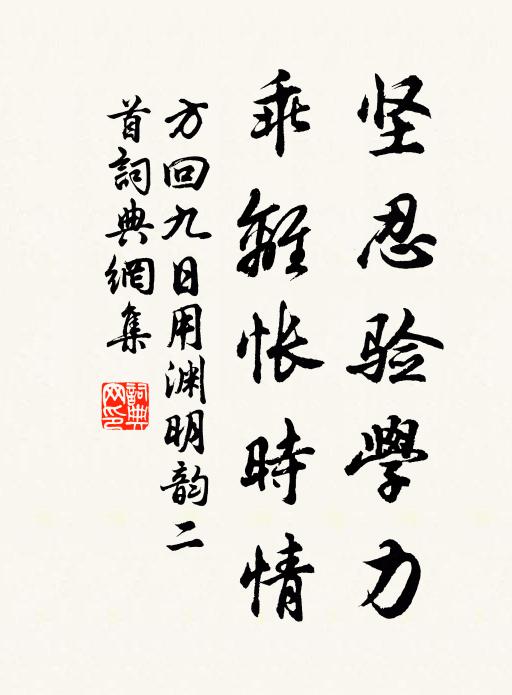 坚忍验學力
乖離怅時情
方回九日用渊明韵二
首詞典網集
詞典
网印